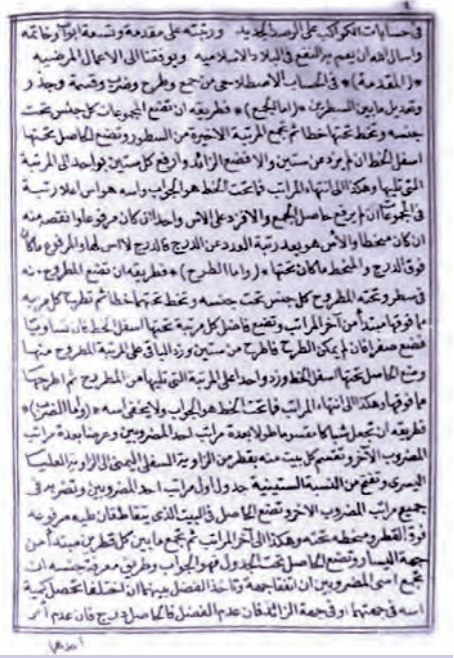 في حسابات الكواكب على الرصد الجديد ورتبته على مقدمة وتسعة ابواب وخاتمة
واسال الله ان يعم به النفع في البلاد الاسلاميه ويوفقنا الى الاعمال المرضيه
(المقدمة) في الحساب الاصطلاحى من جمع وطرح وضرب وقسمة وجذر
وتعديل مابين السطرين (اما الجمع) فطريقه ان تضع المجموعات كل جنس تحت
جنسه وتخط تحتها خطا ثم تجمع المرتبة الاخيرة من السطور وتضع الحاصل تحتها
اسفل الخط ان لم يزد عن ستين والا فضع الزائد وارفع كل ستين بواحد الى المرتبة
التى تليها وهكذا الى انتهاء المراتب فما تحت الخط هو الجواب واسه هو اس اعلا رتبة
في المجموعات ان لم يرفع حاصل الجمع والا فزد على الاس واحدا ان كان مرفوعا وانقصه منه
ان كان منحطا والأس هو بعد رتبة العدد عن الدرج فالدرج لا اس لها والمرفوع ما كان
فوق الدرج والمنحط ما كان تحتها (واما الطرح) فطريقه ان تضع المطروح منه
في سطر وتحته المطروح كل جنس تحت جنسه وتخط تحتهما خطا ثم تطرح كل مرتبة
مما فوقها مبتدأ من آخر المراتب وتضع فاضل كل مرتبة تحتها اسفل الخط فان تساويا
فضع صفرا فان لم يمكن الطرح فاطرح من ستين وزد الباقى على المرتبة المطروح منها
وضع الحاصل تحتها اسفل الخط وزد واحدا على المرتبة التى تليها من المطروح ثم اطرحها
مما فوقها وهكذا الى انتهاء المراتب فما تحت الخط هو الجواب ولا يخفى اسه (واما الضرب)
فطريقه ان تجعل شباكا مقسوما طولا بعدة مراتب احد المضروبين وعرضا بعدة مراتب
المضروب الآخر وتقسم كل بيت منه بقطر من الزاوية السفلى اليمنى الى الزاوية العليا
اليسرى وتضع من النسبة الستينية جدول اول مراتب احد المضروبين وتضربه في
جميع مراتب المضروب الاخر وتضع الحاصل في البيت الذى يتقاطعان عليه مرفوعه
فوق القطر ومنحطه تحته وهكذا الى آخر المراتب ثم تجمع مابين كل قطرين مبتدءا من
جهة اليسار وتضع الحاصل تحت الجدول فهو الجواب وطريق معرفة جنسه ان
تجمع اسى المضروبين ان اتفقا جهة وتاخذ الفضل بينهما ان اختلفا تحصل كمية
اسه في جهتهما او في جهة الزائد فان عدم الفضل فالحاصل درج فان عدم اس